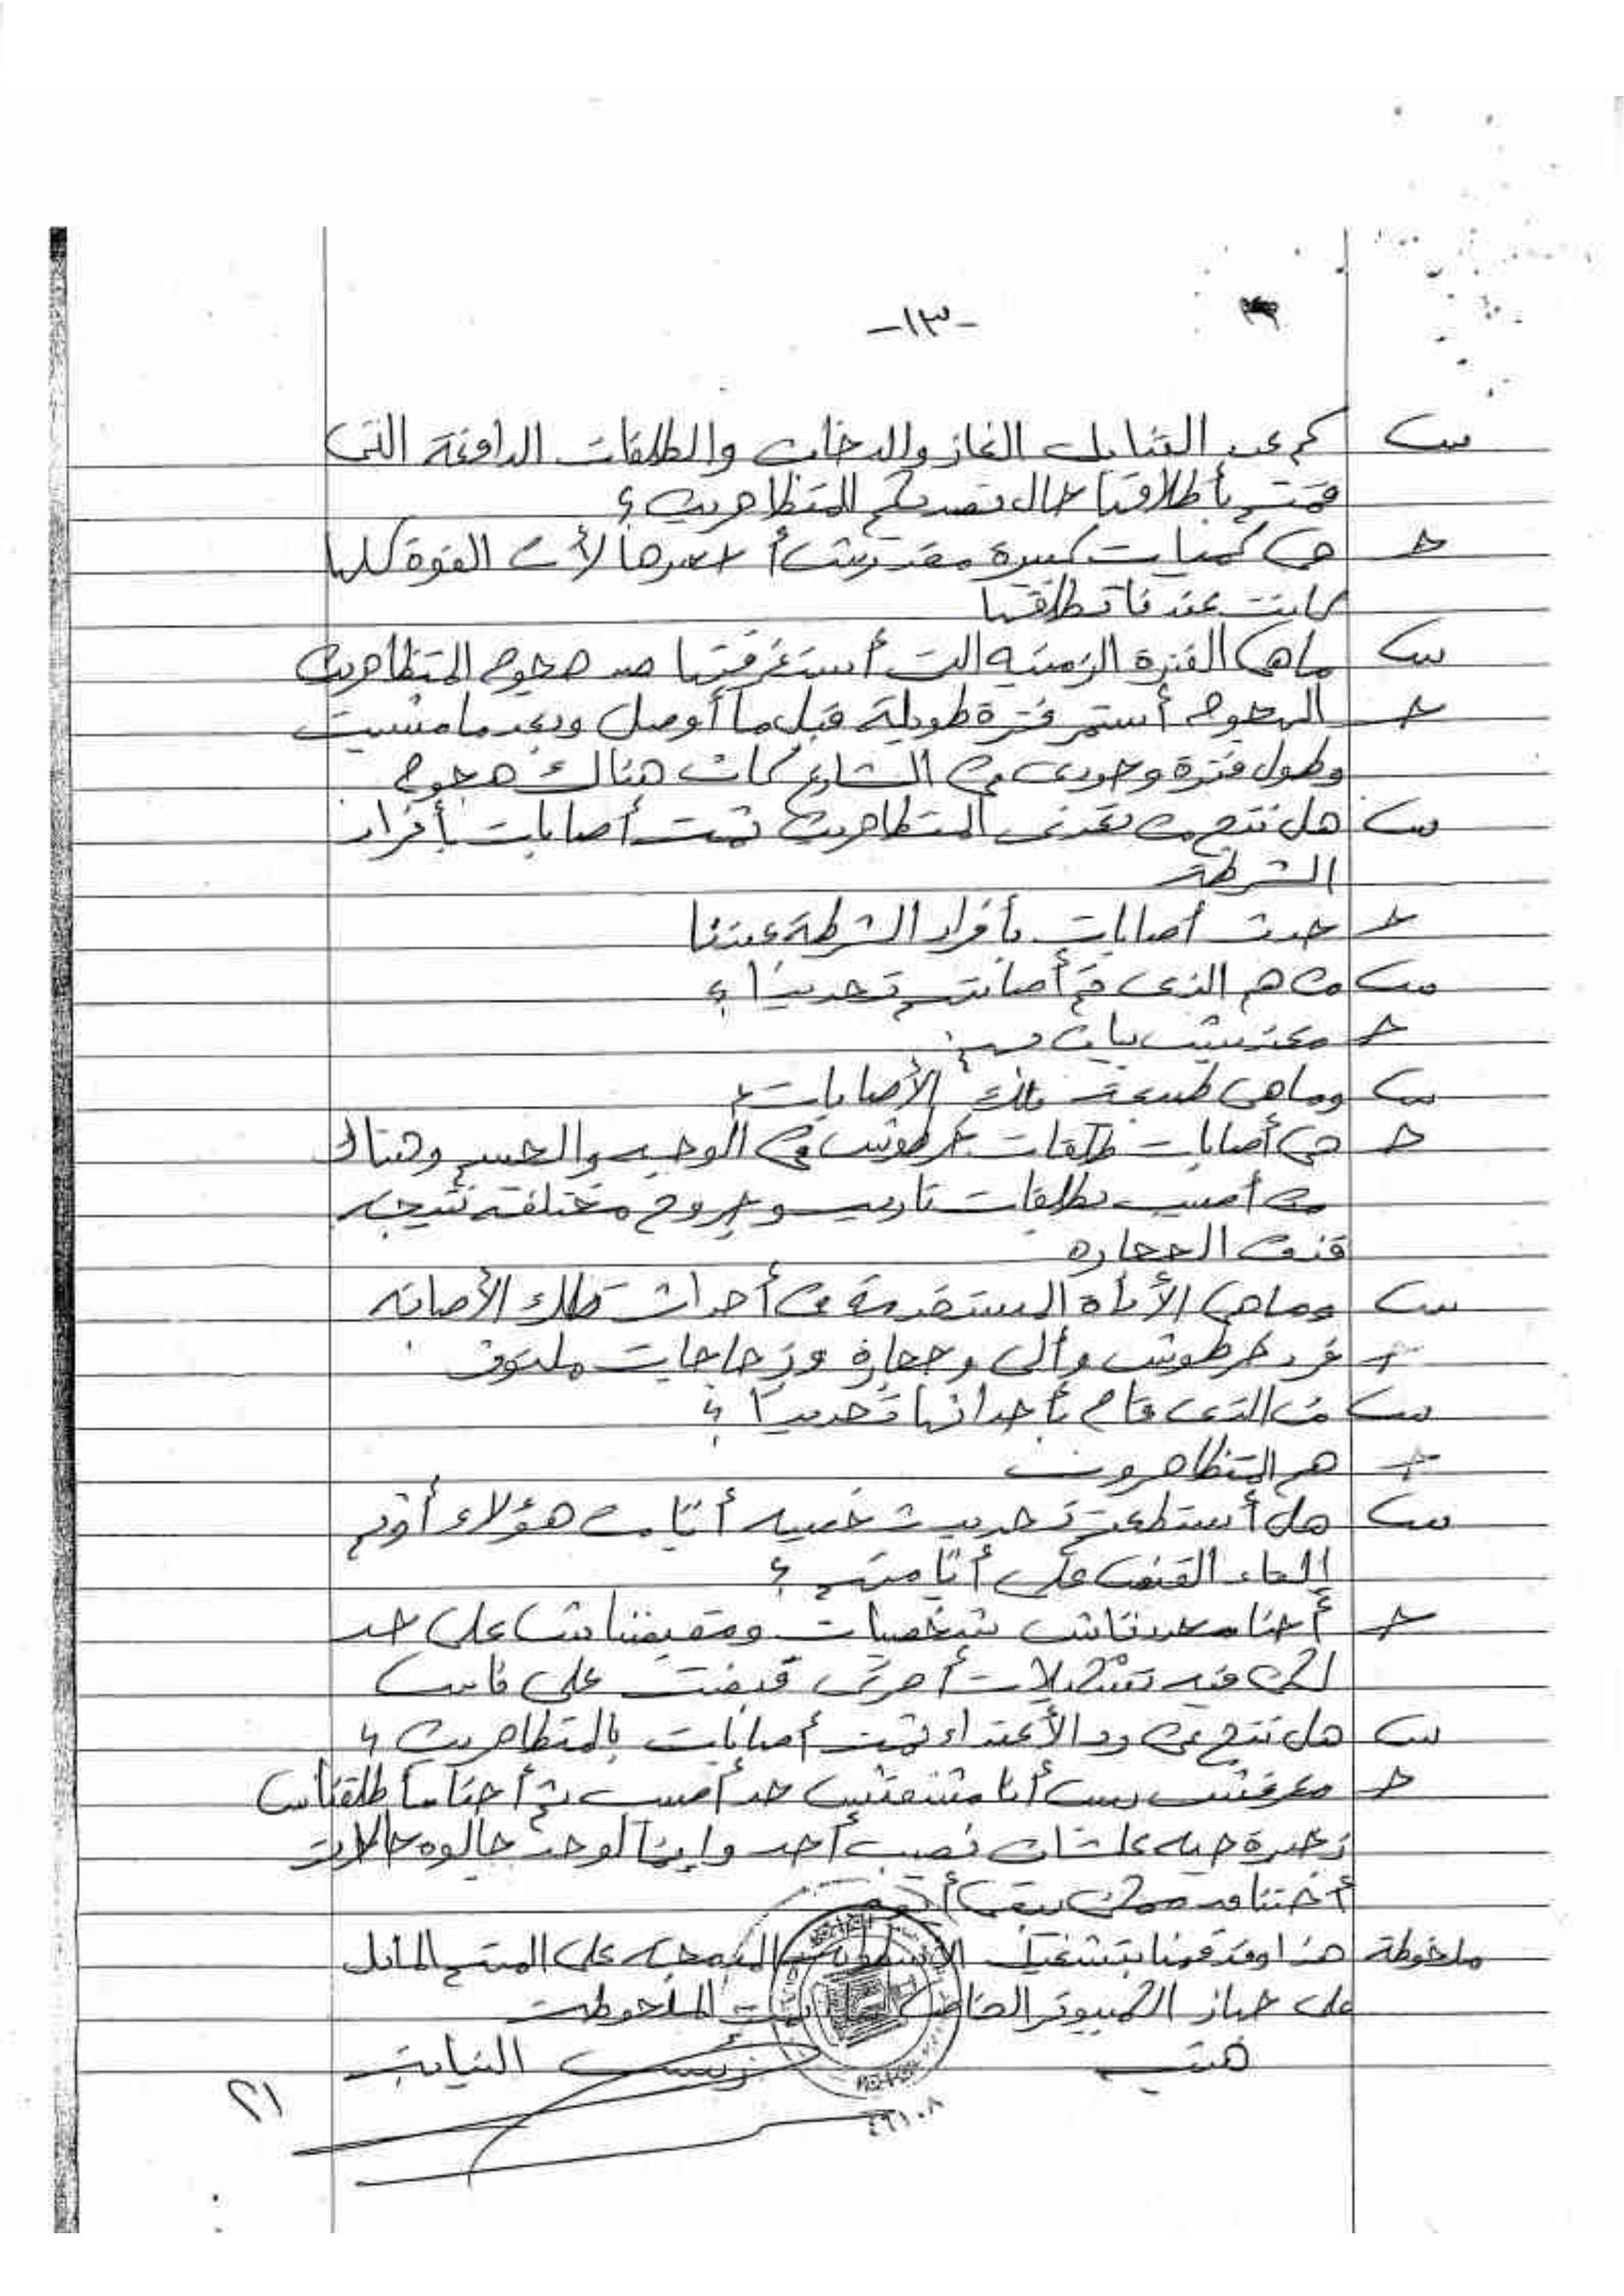 -١٣-
س كم عدد القنابل الغاز والدخان والطلقات الدافعة التى
قمتم بأطلاقها حال تصديكم للمتظاهرين ؟
ج هى كميات كبيرة مقدرش أحصرها لأن القوة كلها
كانت عندنا تطلقها
س ماهى الفترة الزمنيه التى أستغرقتها صد هجوم المتظاهرين
ج الهجوم أستمر فترة طويلة قبل ما أوصل وبعد ما مشيت
وطول فترة وجودى فى الشارع كان هناك هجوم
س هل نتج من تعدى المتظاهرين ثمت أصابات بأفراد
الشرطة
ج حدث أصابات بأفراد الشرطة عندنا
س من هم الذى تم أصابتهم تحديدًا ؟
ج معنديش بيان بهم
س وماهى طبيعة تلك الأصابات ؟
ج هى أصابات طلقات خرطوش فى الوجه والجسم وهناك
من أصيب بطلقات ناريه وجروح مختلفه نتيجه
قذف الحجاره
س وماهى الأداة المستخدمة فى أحداث تلك الأصابه
ج فرد خرطوش وألى وحجارة وزجاجات ملتوف
س من الذى قام بأحداثها تحديدًا ؟
ج هم المتظاهرون
س هل أستطعتم تحديد شخصيه أيًا من هؤلاء أو تم
إلقاء القبض على أيًا منهم ؟
ج أحنا محددناش شخصيات ومقبضناش على حد
لكن فيه تشكيلات أخرى قبضت على ناس
س هل نتج عن رد الأعتداء ثمت أصابات بالمتظاهرين ؟
ج معرفش بس أنا مشفتش حد أصيب ثم أحنا ما طلقناش
ذخيرة حيه علشان نصيب أحد وإنما لو حد جالوه حالات
أختناق ممكن يبقى
ملحوظة هذا وقد قمنا بتشغيل المدمجه على المتهم الماثل
على جهاز الكمبيوتر الخاص تمت الملحوظة
رئيس النيابة
٢١